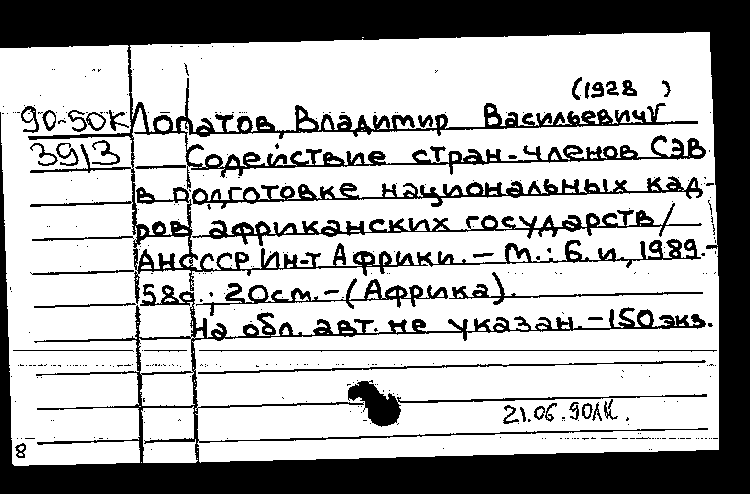 (1928 )
90-50К Лопатов, Владимир Васильевич
3913 Содействие стран-членов СЭВ
в подготовке национальных кад-
ров африканских государств /
АН СССР, Ин-т Африки. - М.: Б. и., 1989.-
58с.; 20см. - (Африка).
На обл. авт. не указан. - 150 экз.
21.06.90ЛК.
8